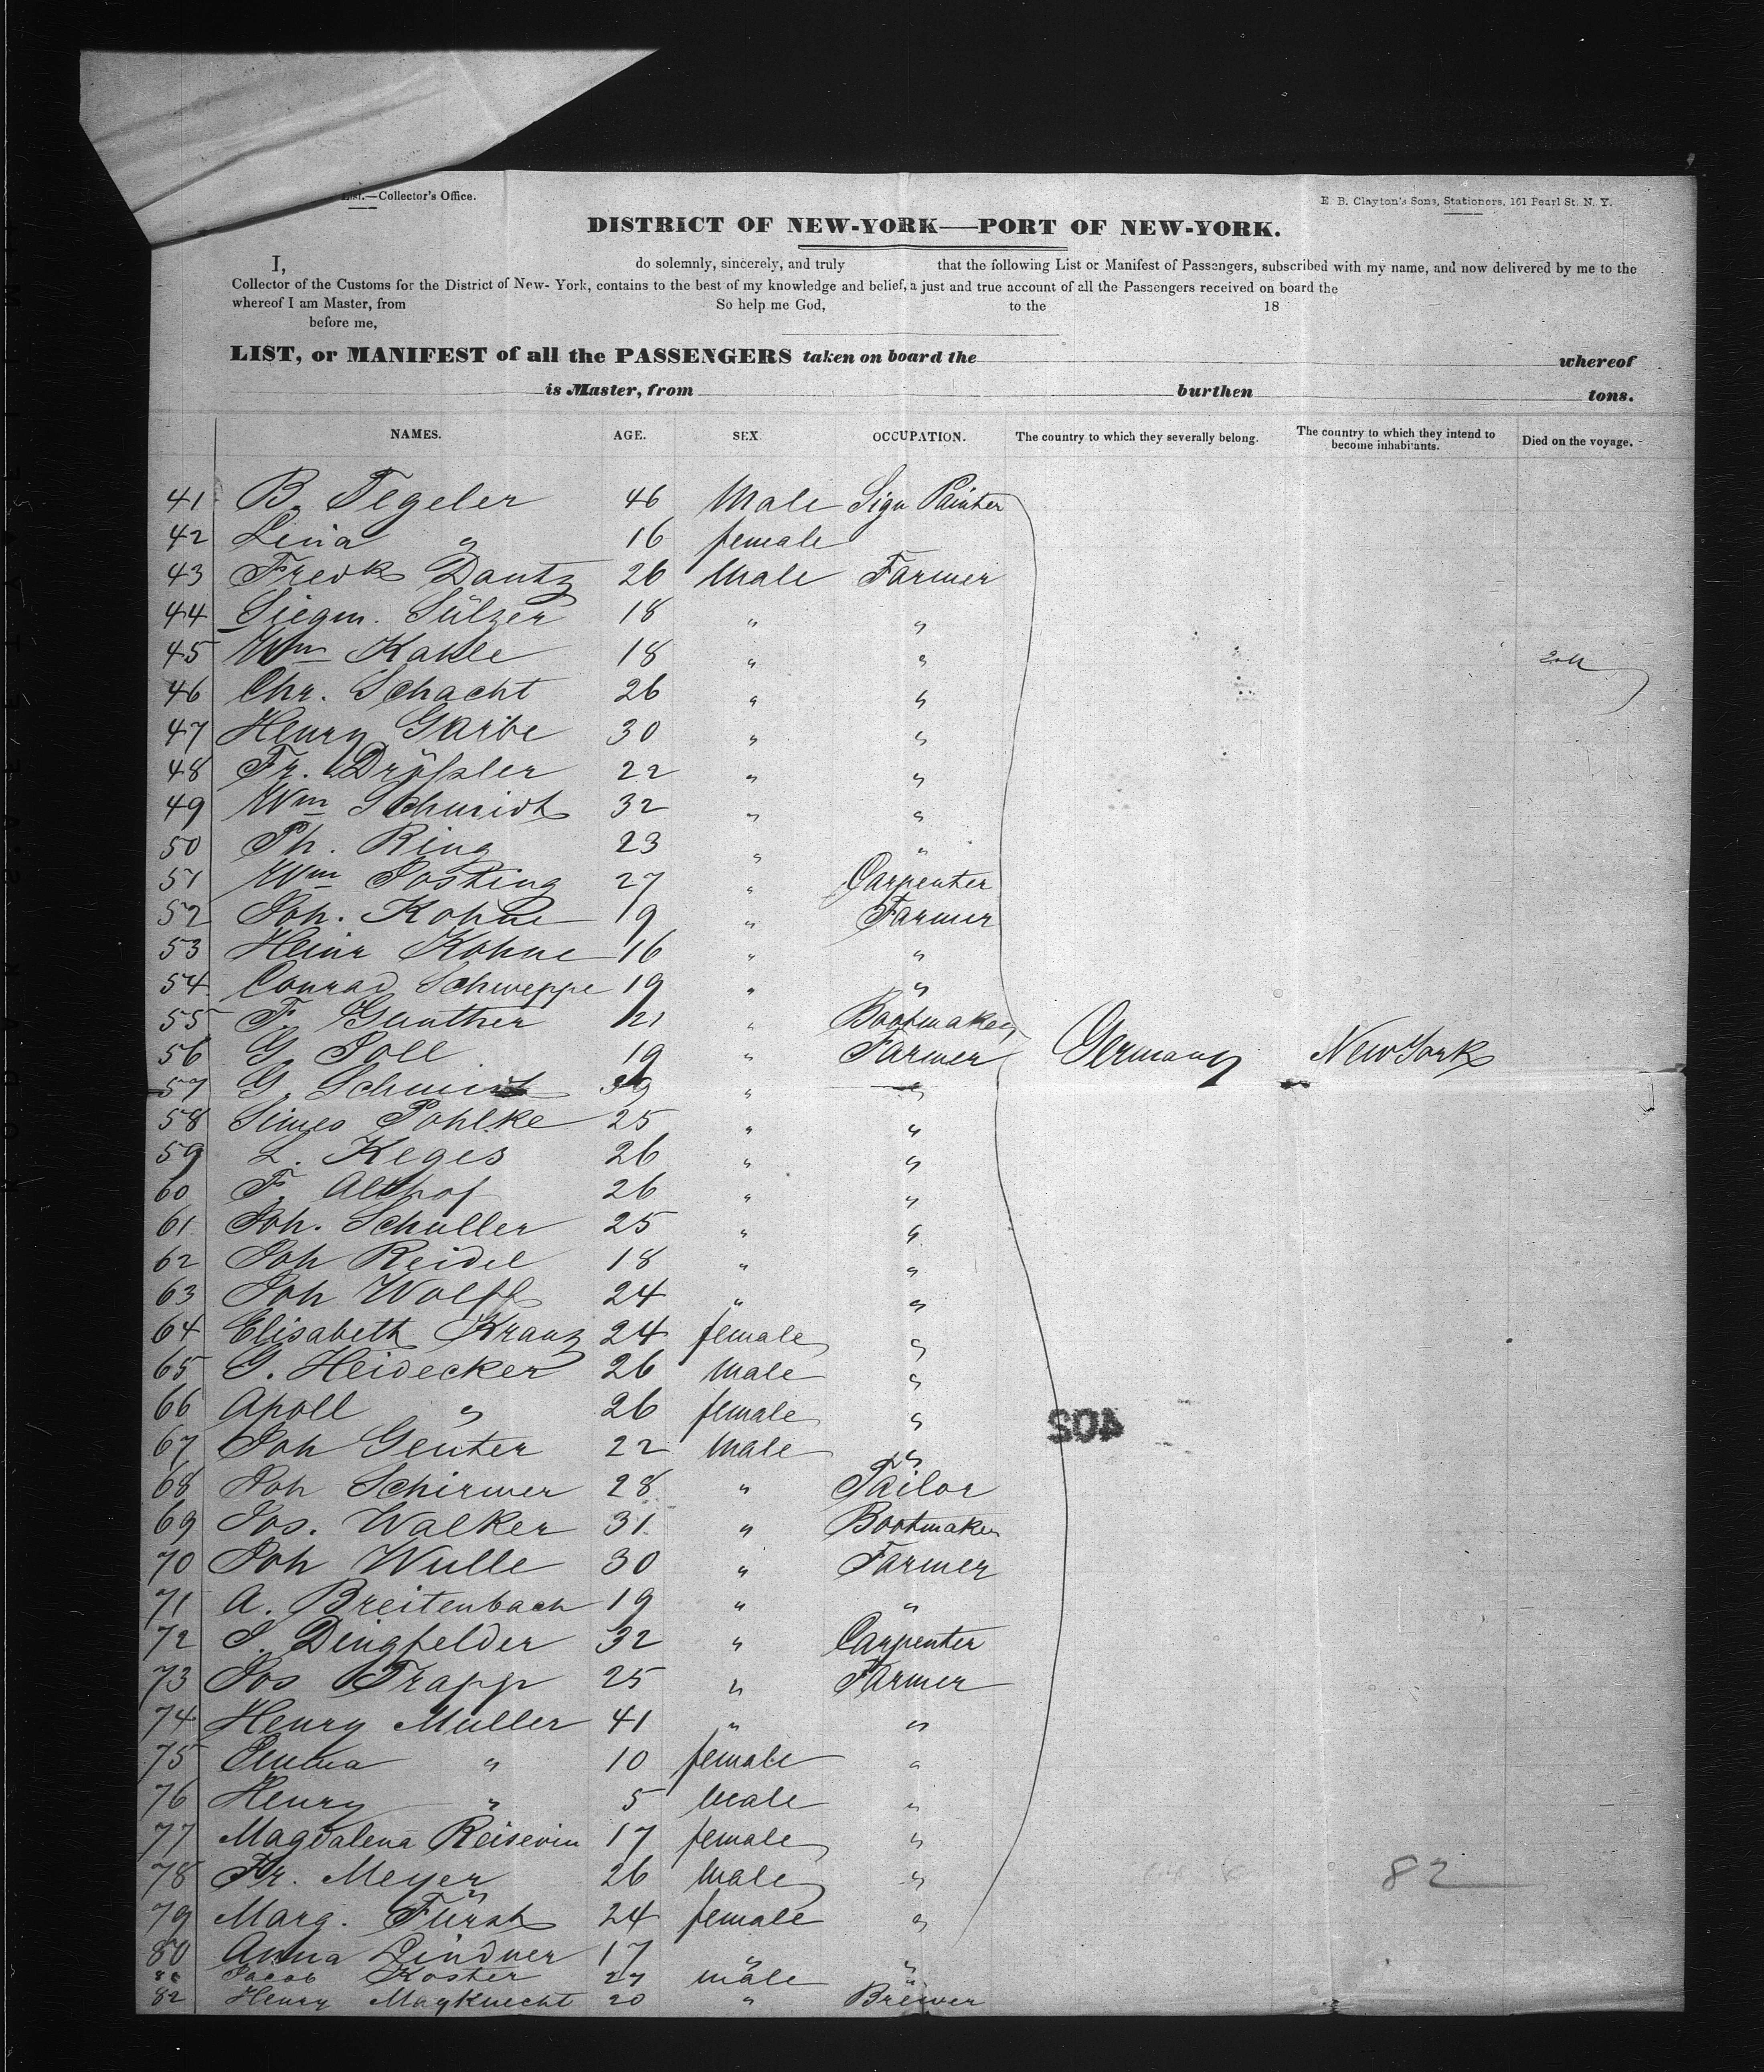 List.—Collector's Office.
E. B. Clayton's Sons, Stationers, 161 Pearl St. N. Y.
DISTRICT OF NEW-YORK—PORT OF NEW-YORK.
I, do solemnly, sincerely, and truly that the following List or Manifest of Passengers, subscribed with my name, and now delivered by me to the
Collector of the Customs for the District of New-York, contains to the best of my knowledge and belief, a just and true account of all the Passengers received on board the
whereof I am Master, from So help me God, to the 18
before me,
LIST, or MANIFEST of all the PASSENGERS taken on board the whereof
is Master, from burthen tons.
NAMES. AGE. SEX. OCCUPATION. The country to which they severally belong. The country to which they intend to become inhabitants. Died on the voyage.
41 B. Tegeler 46 Male Sign Painter
42 Lina " 16 female
43 Fredk Dantz 26 Male Farmer
44 Siegm. Sülzer 18 " "
45 Wm Kahle 18 " "
46 Chr. Schacht 26 " "
47 Henry Garbe 30 " "
48 Fr. Dröſsler 22 " "
49 Wm Schmidt 32 " "
50 Ph. Ring 23 " "
51 Wm Posting 27 " Carpenter
52 Joh. Kohne 19 " Farmer
53 Heinr Kohne 16 " "
54 Conrad Schweppe 19 " "
55 F. Gunther 21 " Bootmaker
56 G. Poll 19 " Farmer Germany New York
57 G. Schmidt 39 " "
58 Simeo Pohlke 25 " "
59 L. Keges 26 " "
60 F. Althof 26 " "
61 Joh. Schuller 25 " "
62 Joh Reidel 18 " "
63 Joh Wolff 24 " "
64 Elisabeth Kranz 24 female "
65 G. Heidecker 26 Male "
66 Apoll " 26 female "
67 Joh Genter 22 Male "
68 Joh Schirmer 28 " Tailor
69 Jos. Walker 31 " Bootmaker
70 Joh Wulle 30 " Farmer
71 A. Breitenbach 19 " "
72 J. Dingfelder 32 " Carpenter
73 Jos Trapp 25 " Farmer
74 Henry Muller 41 " "
75 Emma " 10 female "
76 Henry " 5 Male "
77 Magdalena Reisevin 17 female "
78 Fr. Meyer 26 Male " 82
79 Marg. Fürst 24 female "
80 Anna Lindner 17 " "
Jacob Koster 27 male "
82 Henry Mayknecht 20 " Brewer